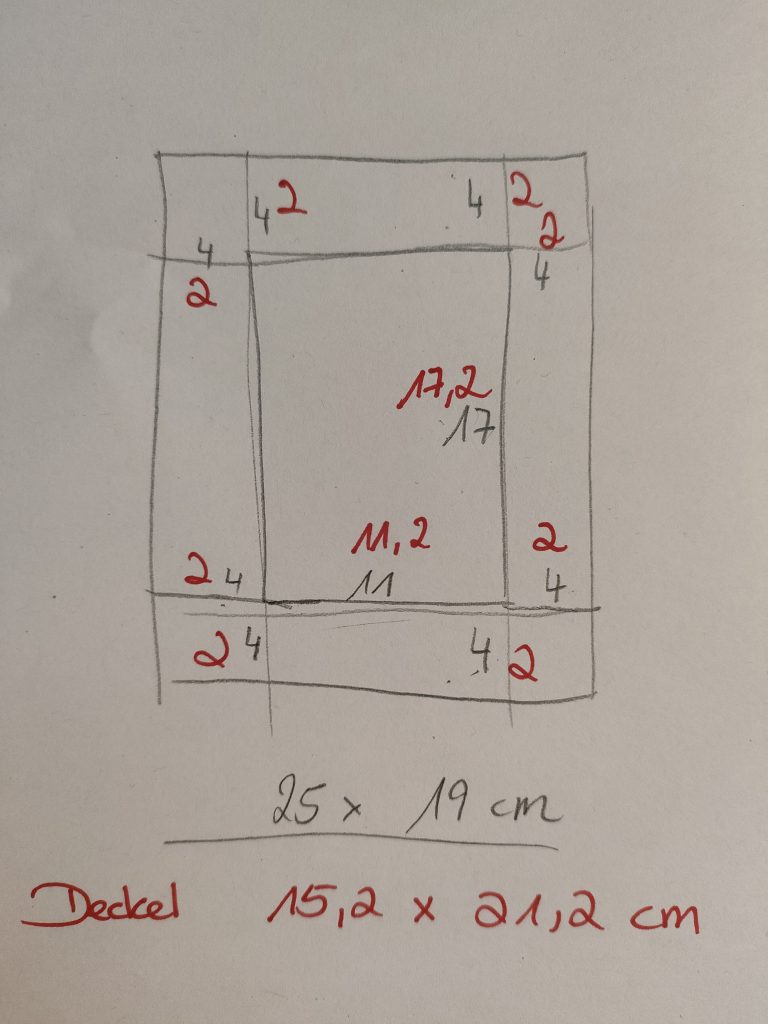 4 2 4 2
2
4 4
2
17,2
17
11,2 2
2 4 11 4
2 4 4 2
25 x 19 cm
Deckel 15,2 x 21,2 cm